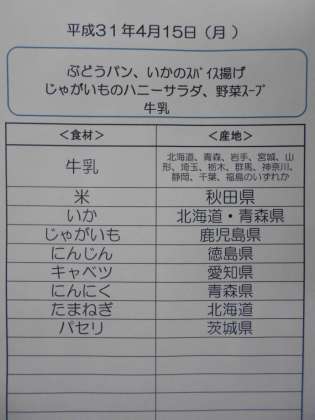 平成31年4月15日（月）
ぶどうパン、いかのｽﾊﾟｲｽ揚げ
じゃがいものハニーサラダ、野菜ｽｰﾌﾟ
牛乳
＜食材＞ ＜産地＞
牛乳 北海道、青森、岩手、宮城、山
形、埼玉、栃木、群馬、神奈川、
静岡、千葉、福島のいずれか
米 秋田県
いか 北海道・青森県
じゃがいも 鹿児島県
にんじん 徳島県
キャベツ 愛知県
にんにく 青森県
たまねぎ 北海道
パセリ 茨城県